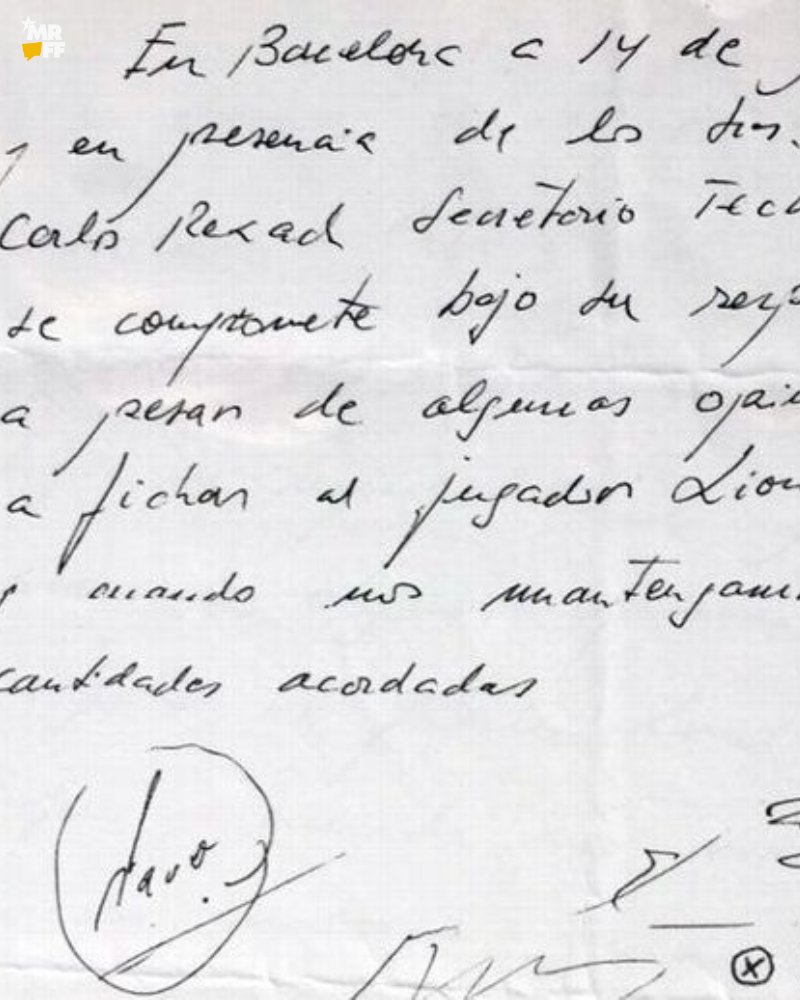 MR
FF
En Barcelona a 14 de
en presencia de los Sres.
Carlos Rexach Secretario Tecn
se compromete bajo su resp
a pesar de algunas opin
a fichar al jugador Lion
y cuando nos mantengam
cantidades acordadas